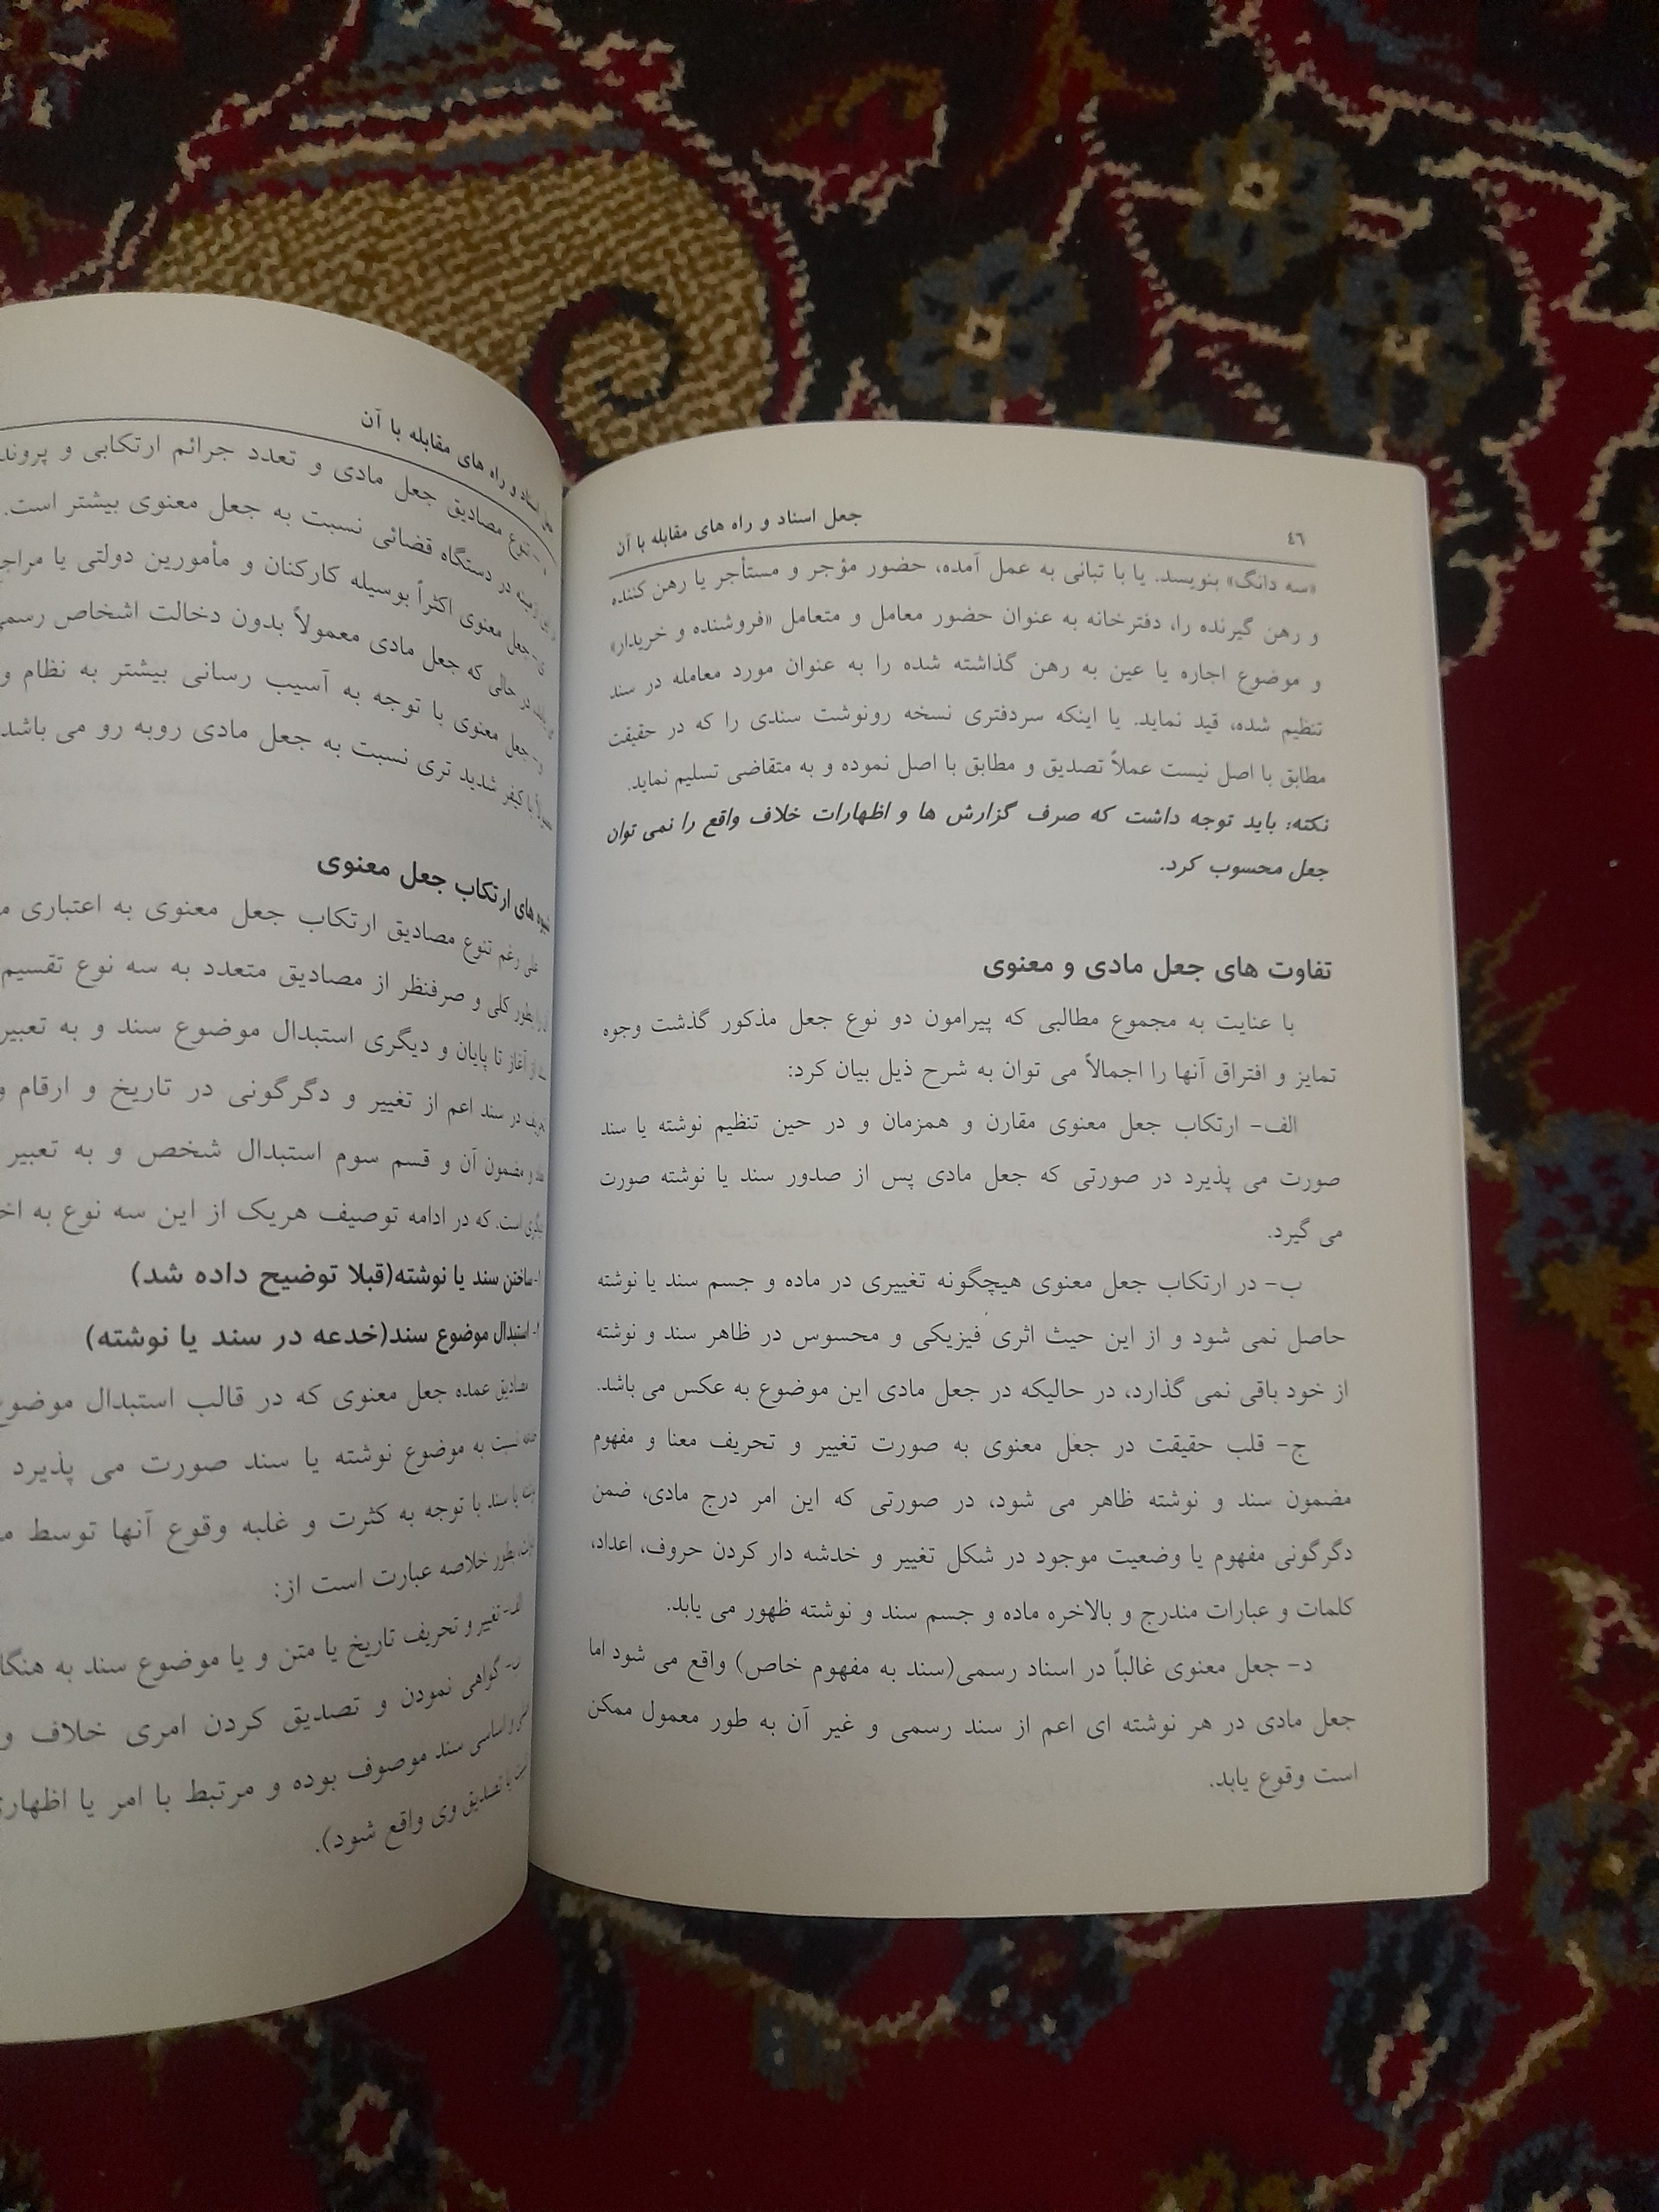 ٤٦
جعل اسناد و راه های مقابله با آن
«سه دانگ» بنویسد. یا با تبانی به عمل آمده، حضور مؤجر و مستأجر یا رهن کننده
و رهن گیرنده را، دفترخانه به عنوان حضور معامل و متعامل «فروشنده و خریدار»
و موضوع اجاره یا عین به رهن گذاشته شده را به عنوان مورد معامله در سند
تنظیم شده، قید نماید. یا اینکه سردفتری نسخه رونوشت سندی را که در حقیقت
مطابق با اصل نیست عملاً تصدیق و مطابق با اصل نموده و به متقاضی تسلیم نماید.
نکته: باید توجه داشت که صرف گزارش ها و اظهارات خلاف واقع را نمی توان
جعل محسوب کرد.
تفاوت های جعل مادی و معنوی
با عنایت به مجموع مطالبی که پیرامون دو نوع جعل مذکور گذشت وجوه
تمایز و افتراق آنها را اجمالاً می توان به شرح ذیل بیان کرد:
الف- ارتکاب جعل معنوی مقارن و همزمان و در حین تنظیم نوشته یا سند
صورت می پذیرد در صورتی که جعل مادی پس از صدور سند یا نوشته صورت
می گیرد.
ب- در ارتکاب جعل معنوی هیچگونه تغییری در ماده و جسم سند یا نوشته
حاصل نمی شود و از این حیث اثری فیزیکی و محسوس در ظاهر سند و نوشته
از خود باقی نمی گذارد، در حالیکه در جعل مادی این موضوع به عکس می باشد.
ج- قلب حقیقت در جعل معنوی به صورت تغییر و تحریف معنا و مفهوم
مضمون سند و نوشته ظاهر می شود، در صورتی که این امر درج مادی، ضمن
دگرگونی مفهوم یا وضعیت موجود در شکل تغییر و خدشه دار کردن حروف، اعداد،
کلمات و عبارات مندرج و بالاخره ماده و جسم سند و نوشته ظهور می یابد.
د- جعل معنوی غالباً در اسناد رسمی(سند به مفهوم خاص) واقع می شود اما
جعل مادی در هر نوشته ای اعم از سند رسمی و غیر آن به طور معمول ممکن
است وقوع یابد.
اسناد و راه های مقابله با آن
تنوع مصادیق جعل مادی و تعدد جرائم ارتکابی و
در دستگاه قضائی نسبت به جعل معنوی بیشتر است.
جعل معنوی اکثراً بوسیله کارکنان و مأمورین دولتی یا
در حالی که جعل مادی معمولاً بدون دخالت اشخاص
و- جعل معنوی با توجه به آسیب رسانی بیشتر به نظام و
با کیفر شدید تری نسبت به جعل مادی روبه رو می باشد
شیوه های ارتکاب جعل معنوی
علی رغم تنوع مصادیق ارتکاب جعل معنوی به اعتباری
بطور کلی و صرفنظر از مصادیق متعدد به سه نوع تقسیم
از آغاز تا پایان و دیگری استبدال موضوع سند و به تعبیر
تحریف در سند اعم از تغییر و دگرگونی در تاریخ و ارقام و
و مضمون آن و قسم سوم استبدال شخص و به تعبیر
دیگری است. که در ادامه توصیف هریک از این سه نوع به
۱- ساختن سند یا نوشته(قبلا توضیح داده شد)
استبدال موضوع سند(خدعه در سند یا نوشته)
مصادیق عمده جعل معنوی که در قالب استبدال موضوع
نسبت به موضوع نوشته یا سند صورت می پذیرد
یا سند با توجه به کثرت و غلبه وقوع آنها توسط
بطور خلاصه عبارت است از:
الف- تغییر و تحریف تاریخ یا متن و یا موضوع سند به
ب- گواهی نمودن و تصدیق کردن امری خلاف
و اساسی سند موصوف بوده و مرتبط با امر یا
تصدیق وی واقع شود).